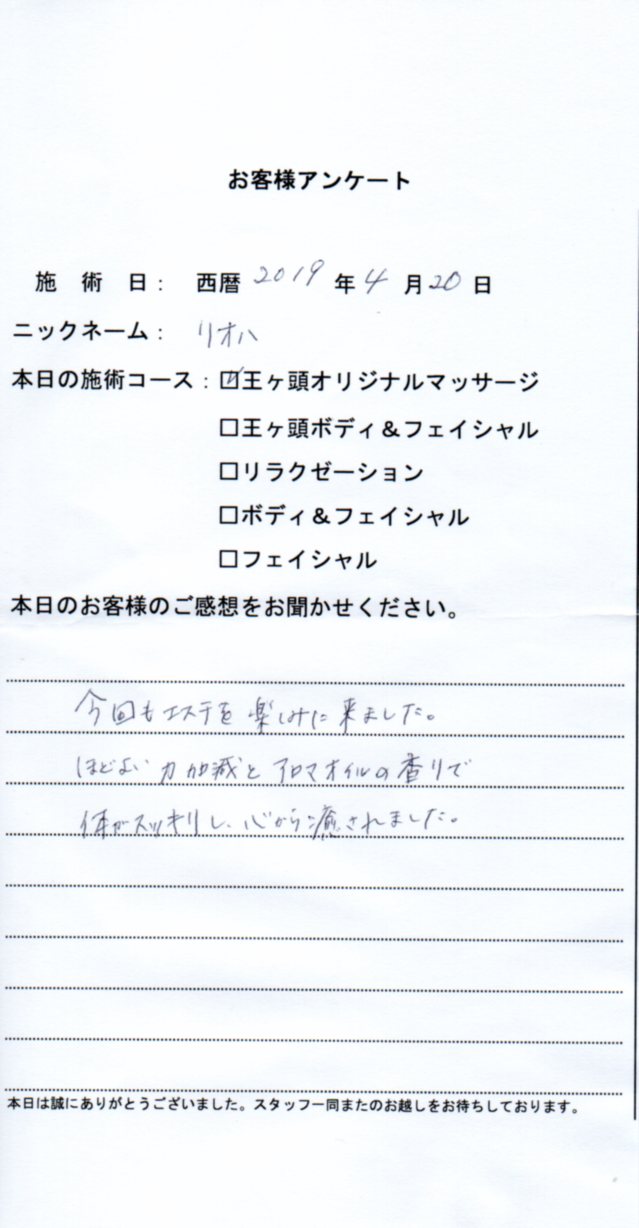 お客様アンケート
施 術 日： 西暦 2019 年 4 月 20 日
ニックネーム： リオハ
本日の施術コース：☑王ヶ頭オリジナルマッサージ
□王ヶ頭ボディ＆フェイシャル
□リラクゼーション
□ボディ＆フェイシャル
□フェイシャル
本日のお客様のご感想をお聞かせください。
今回もエステを楽しみに来ました。
ほどよい力加減とアロマオイルの香りで
体がスッキリし、心から癒されました。
本日は誠にありがとうございました。スタッフ一同またのお越しをお待ちしております。